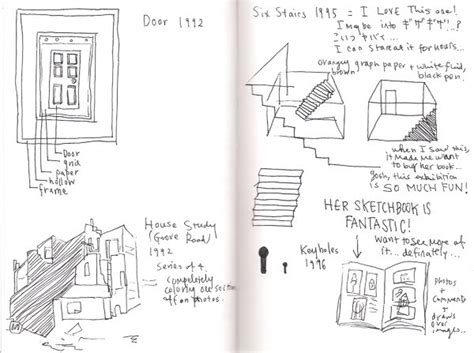 Door 1992
Door
grid
paper
hollow
frame
House Study
(Grove Road)
1992
series of 4.
completely
coloring one section
of on photos.
Six Stairs 1995 = I LOVE This one!
I maybe into
I can stare at it for hours...
orangey graph paper + white fluid,
brown
black pen.
when I saw this,
it made me want
to buy her book...
gosh, this exhibition
is SO MUCH FUN!
HER SKETCHBOOK IS
FANTASTIC!
want to see more of
it... definately...
Keyholes
1996
photos
+
comments
+
draws
over
images...